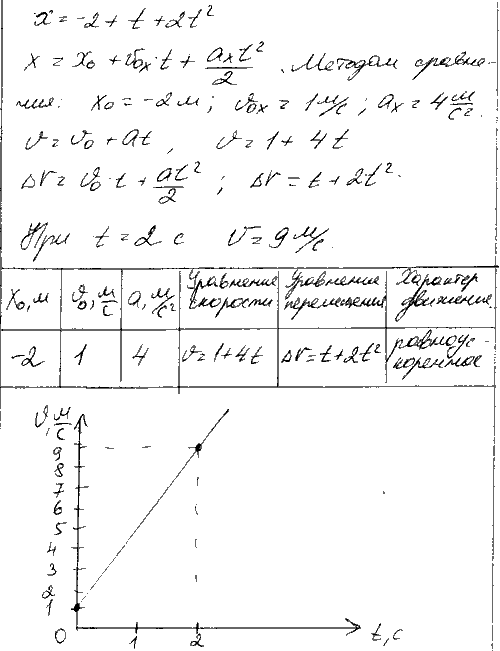 x = -2 + t + 2t²
x = x₀ + v₀ₓ·t + aₓt²/2. Методом сравне-
ния: x₀ = -2 м; v₀ₓ = 1 м/с; aₓ = 4 м/с².
v = v₀ + at, v = 1 + 4t
Δr = v₀·t + at²/2; Δr = t + 2t².
При t = 2 с v = 9 м/с.
x₀, м | v₀, м/с | a, м/с² | Уравнение скорости | Уравнение перемещения | Характер движение
-2 | 1 | 4 | v = 1 + 4t | Δr = t + 2t² | равноус-коренное
v, м/с
9
8
7
6
5
4
3
2
1
0 1 2 t, с